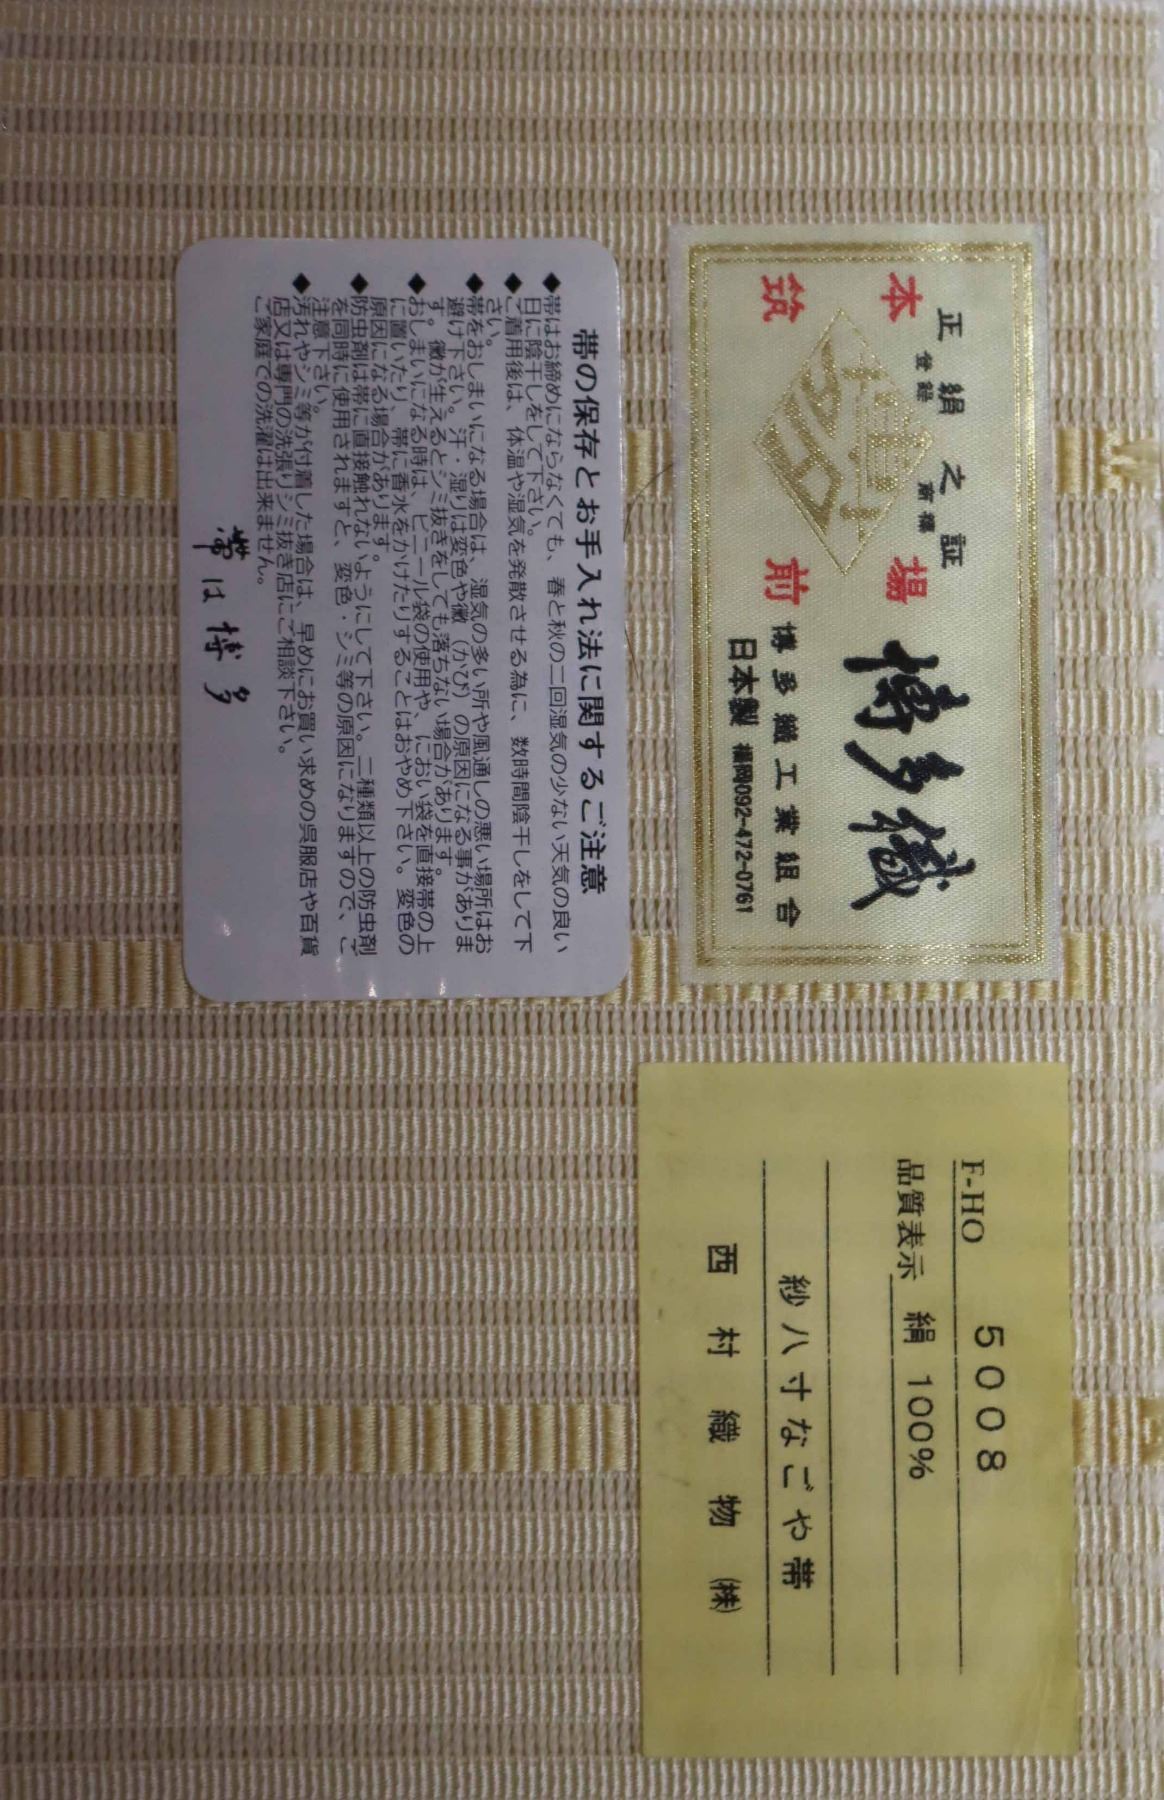 正絹之証
登録商標
本場
筑前
博多織
博多織工業組合
日本製 福岡092-472-0761
帯の保存とお手入れ法に関するご注意
◆帯はお締めにならなくても、春と秋の二回湿気の少ない天気の良い
日に陰干しをして下さい。
◆ご着用後は、体温や湿気を発散させる為に、数時間陰干しをして下
さい。
◆帯をおしまいになる場合は、湿気の多い所や風通しの悪い場所はお
避け下さい。汗・湿りは変色や黴（かび）の原因になる事がありま
す。黴が生えるとシミ抜きをしても落ちない場合があります。
◆おしまいになる時は、ビニール袋の使用や、におい袋を直接帯の上
に置いたり、帯に香水をかけたりすることはおやめ下さい。変色の
原因になる場合があります。
◆防虫剤は帯に直接触れないようにして下さい。二種類以上の防虫剤
を同時に使用されますと、変色・シミ等の原因になりますので、ご
注意下さい。
◆汚れやシミ等が付着した場合は、早めにお買い求めの呉服店や百貨
店又は専門の洗張りシミ抜き店にご相談下さい。
ご家庭での洗濯は出来ません。
帯は博多
F-HO 5008
品質表示 絹 100%
紗八寸なごや帯
西村織物㈱